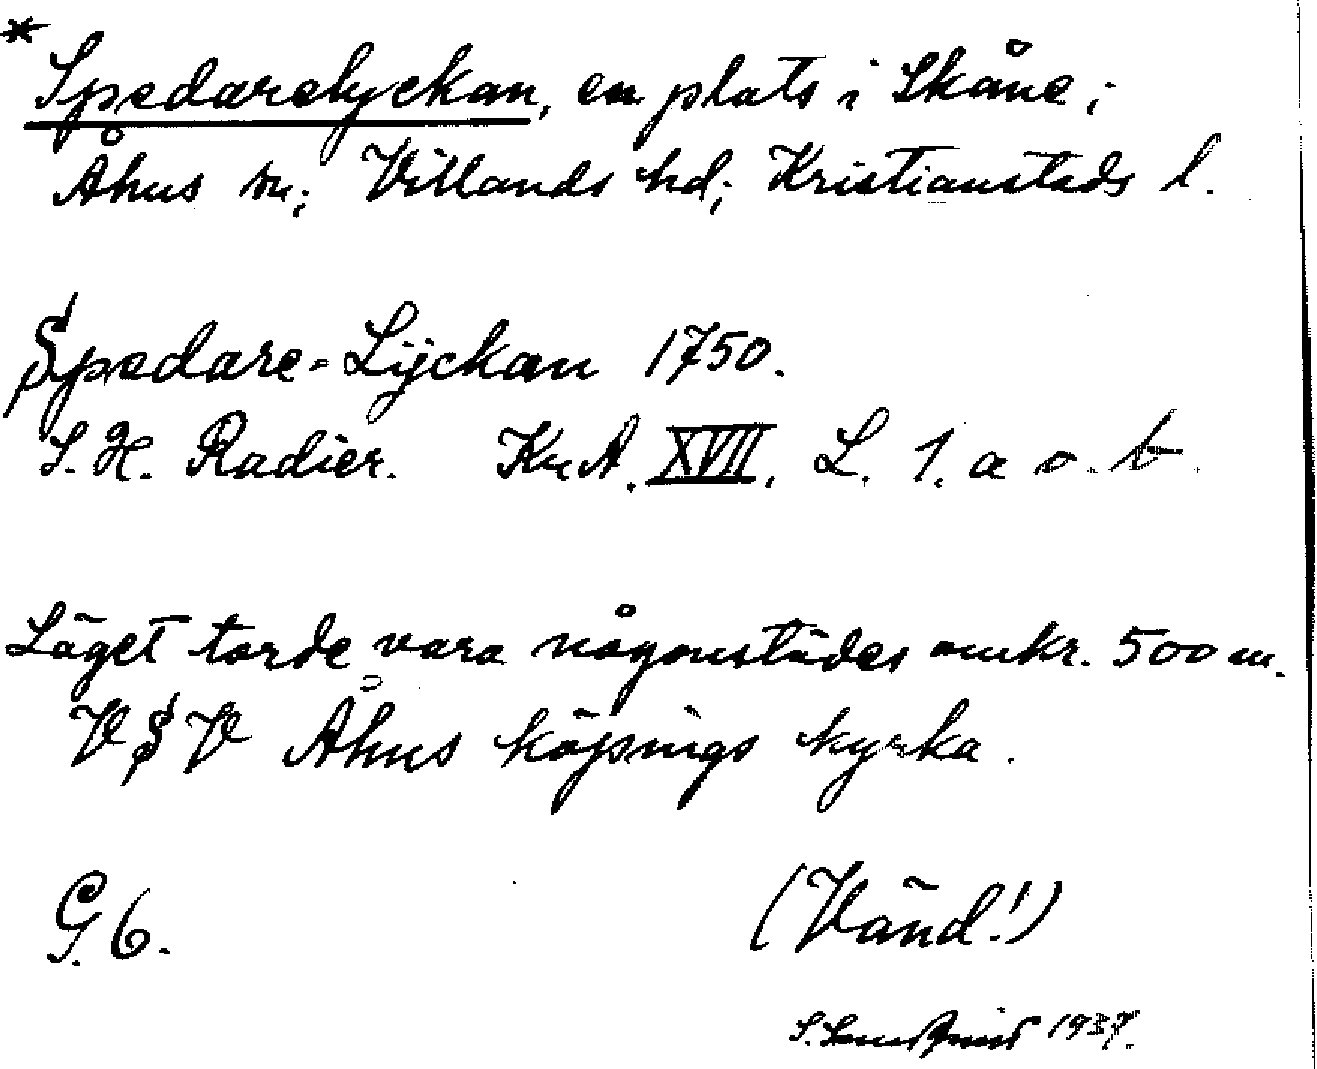 * Spedarelyckan, en plats i Skåne;
Åhus sn; Villands hd; Kristianstads l.
Spedare-Lÿckan 1750.
S. H. Radier. KrA. XVII. L. 1. a o. b.
Läget torde vara någonstädes omkr. 500 m.
V S V Åhus köpings kyrka.
G. 6.
(Vänd!)
S. 1937.